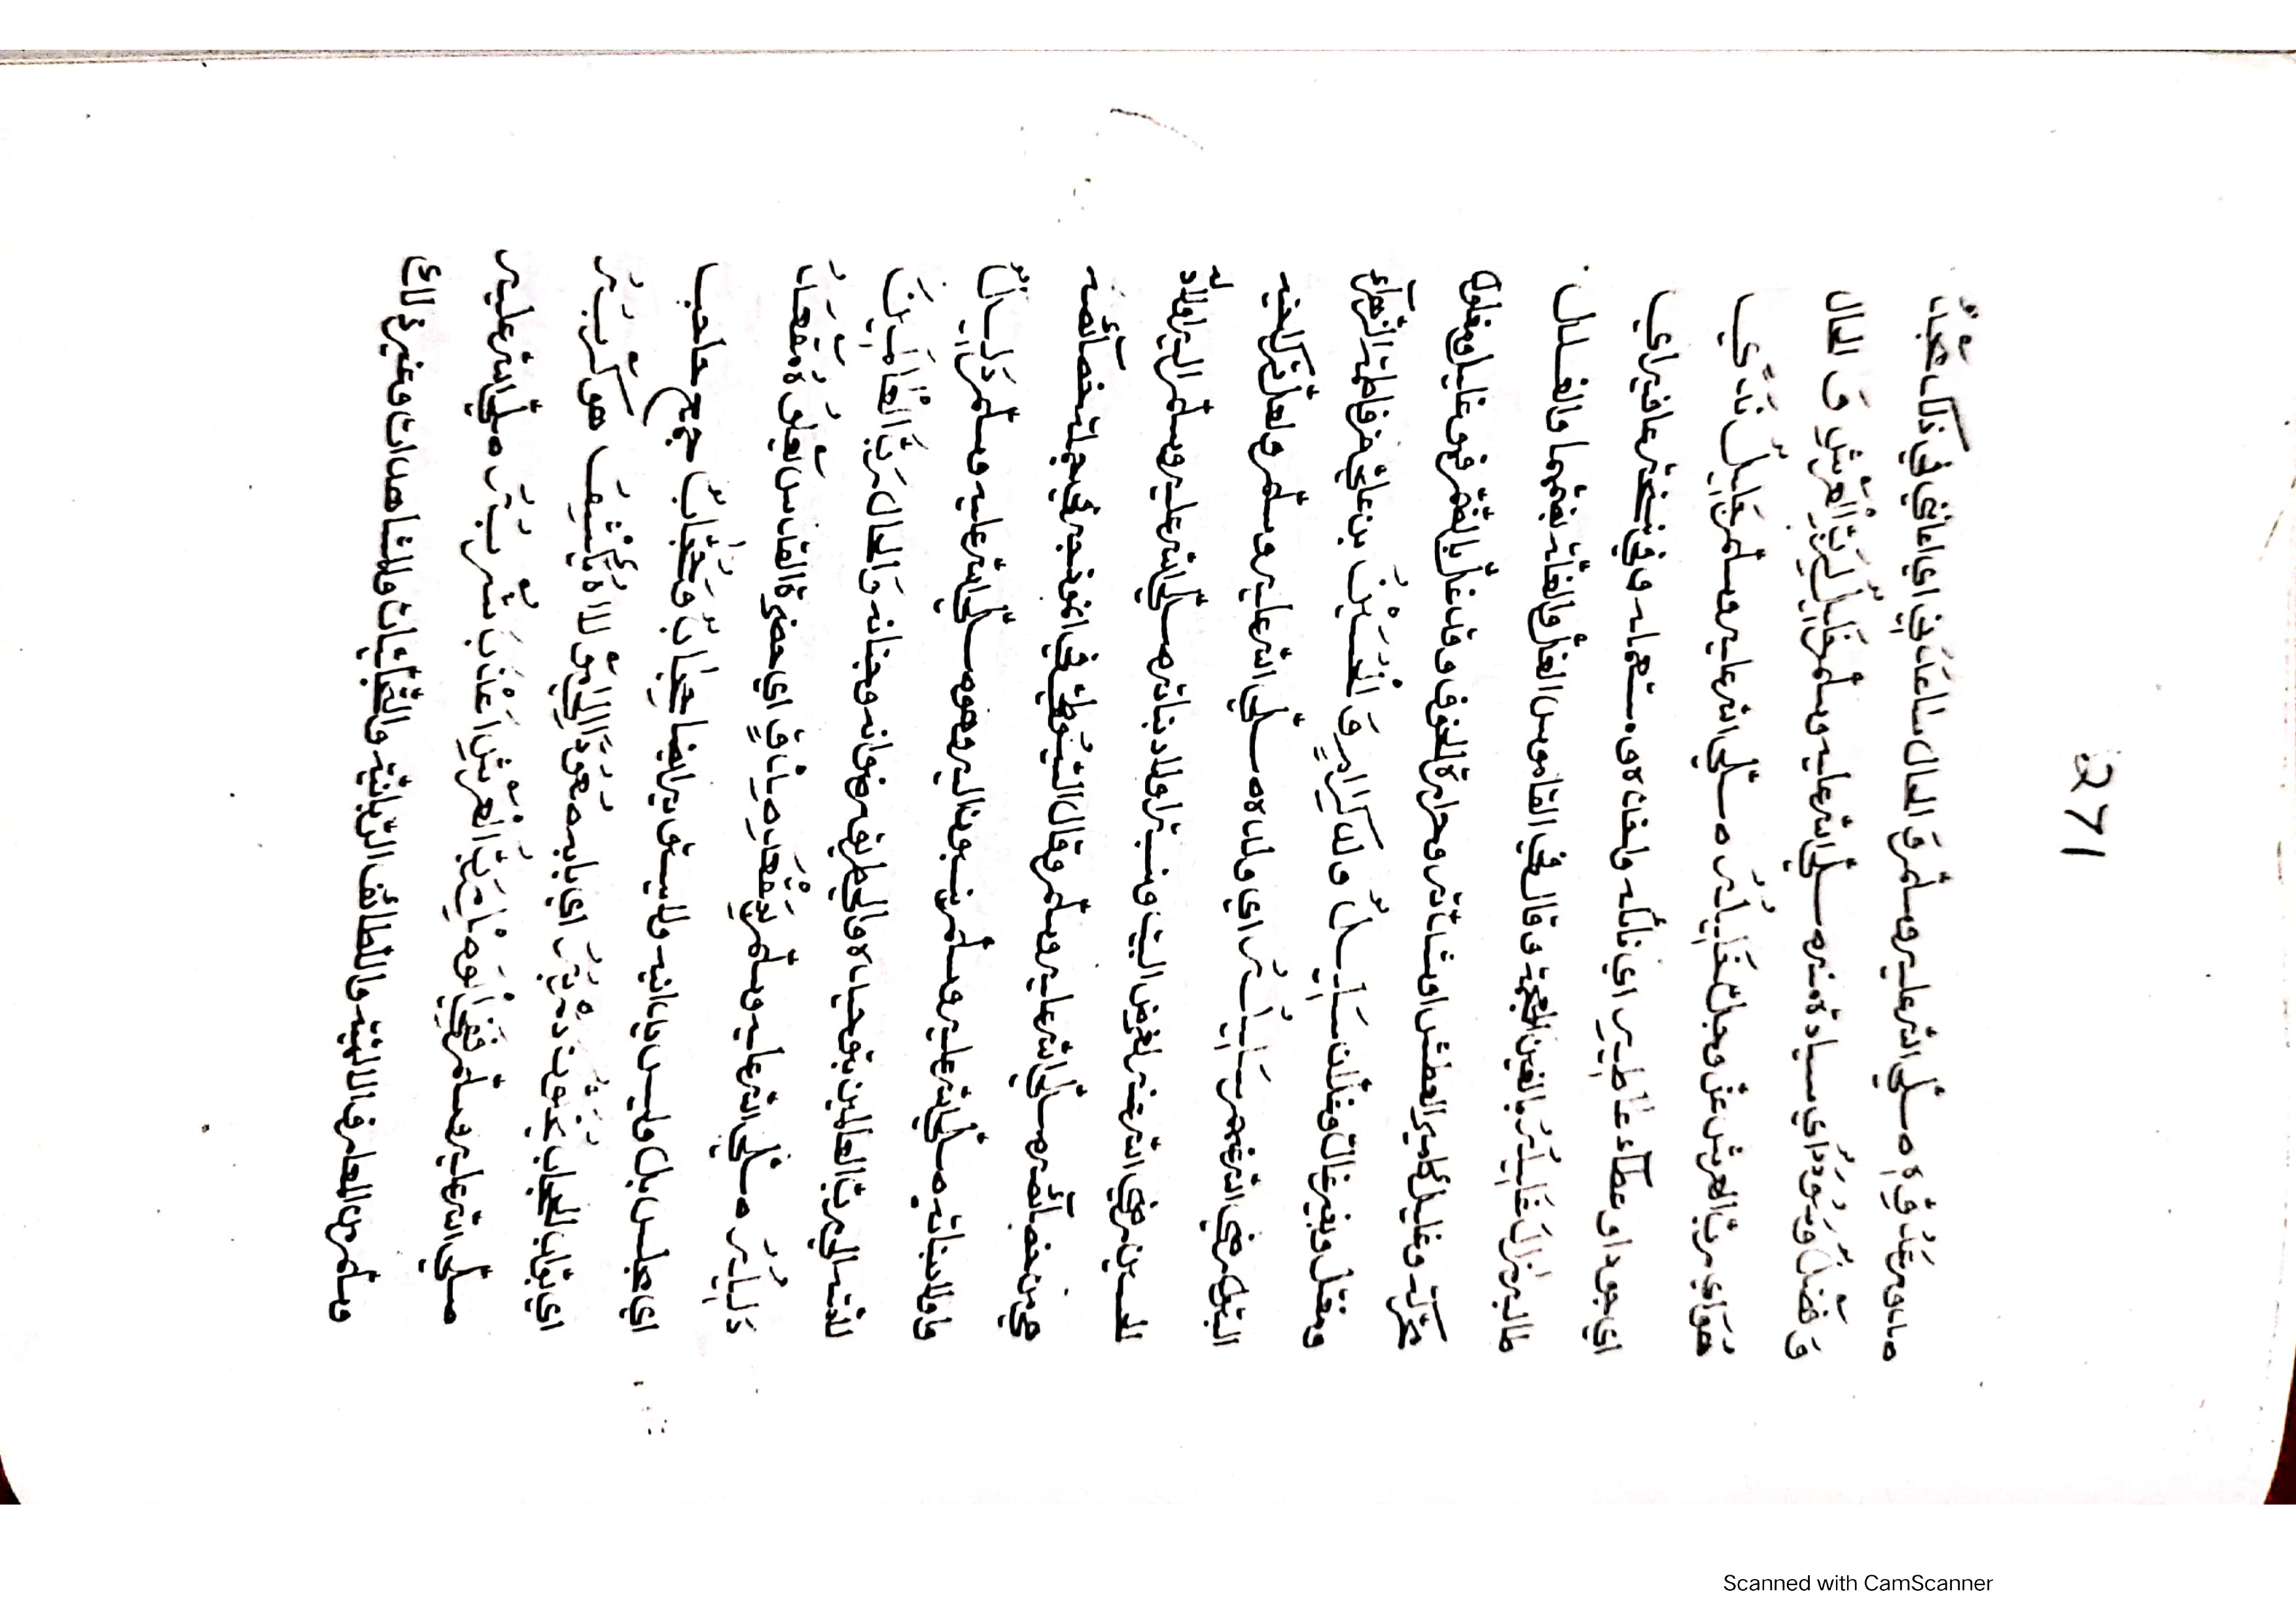 271
صلى الله عليه وسلم وَ الحال ما عَدَنِي اي عاقني في ذلك
وَ فَضْلٌ وَسُودَدٌ اي سيادة منه صلى الله عليه وسلم خَلِيلُ رَبِّ الْعَرْشِ وَ الحال
هُوَ اي رب العرش عز وجل خَلِيلُهُ صلى الله عليه وسلم خَلِيلٌ نَدِيٌّ
اي جودا وعطاء عَاطِيهِ اي نائله واخذه ومستعمله وفي نسخة عافيه اي
طالبه زال غَلِيلُهُ بالغين المعجمة وقال في القاموس الغل والغلة بضمهما والغلل
محركة وغليل كامير العطش او شدته وحرارة الجوف وقد غل بالضم فهو غليل ومغلول
ومغتل وبعير غال وغلان سَلِيلٌ ولد كِرَامٍ وَ الْحُسَيْنُ بن علي من فاطمة الزهراء
البتول رضي الله عنهم سَلِيلُهُ اي ولده صلى الله عليه وسلم ولعل الخبر
الحسين رضي الله عنه لغرض البيت ونسبة اولاد بناته صلى الله عليه وسلم اليه اولاد له
هي من خصائصه صلى الله عليه وسلم وقال السيوطي في انموذجه في جملة خصائصه
واولاد بناته صلى الله عليه وسلم ينسبون اليه وهو صلى الله عليه وسلم دَلِيلٌ
للامة الى رب العالمين بتوحيده والى طريق رضوانه وجنانه وَالحال رَبُّ الْعَالَمِينَ
دَلِيلُهُ صلى الله عليه وسلم بِمَقْعَدِ صِدْقٍ اي حضرة القدس
اي جلس بل وليس يدانيه ولا يستوي به ايضا حِجَابٌ وَحُجَّابٌ جمع حاجب
اي بواب اي بابه هو
صلى الله عليه وسلم رَبِّ الْعَرْشِ صلى الله عليه
وسلم من المعارف الالهية واللطائف الربانية والتجليات والمشاهدات وغير ذلك
Scanned with CamScanner